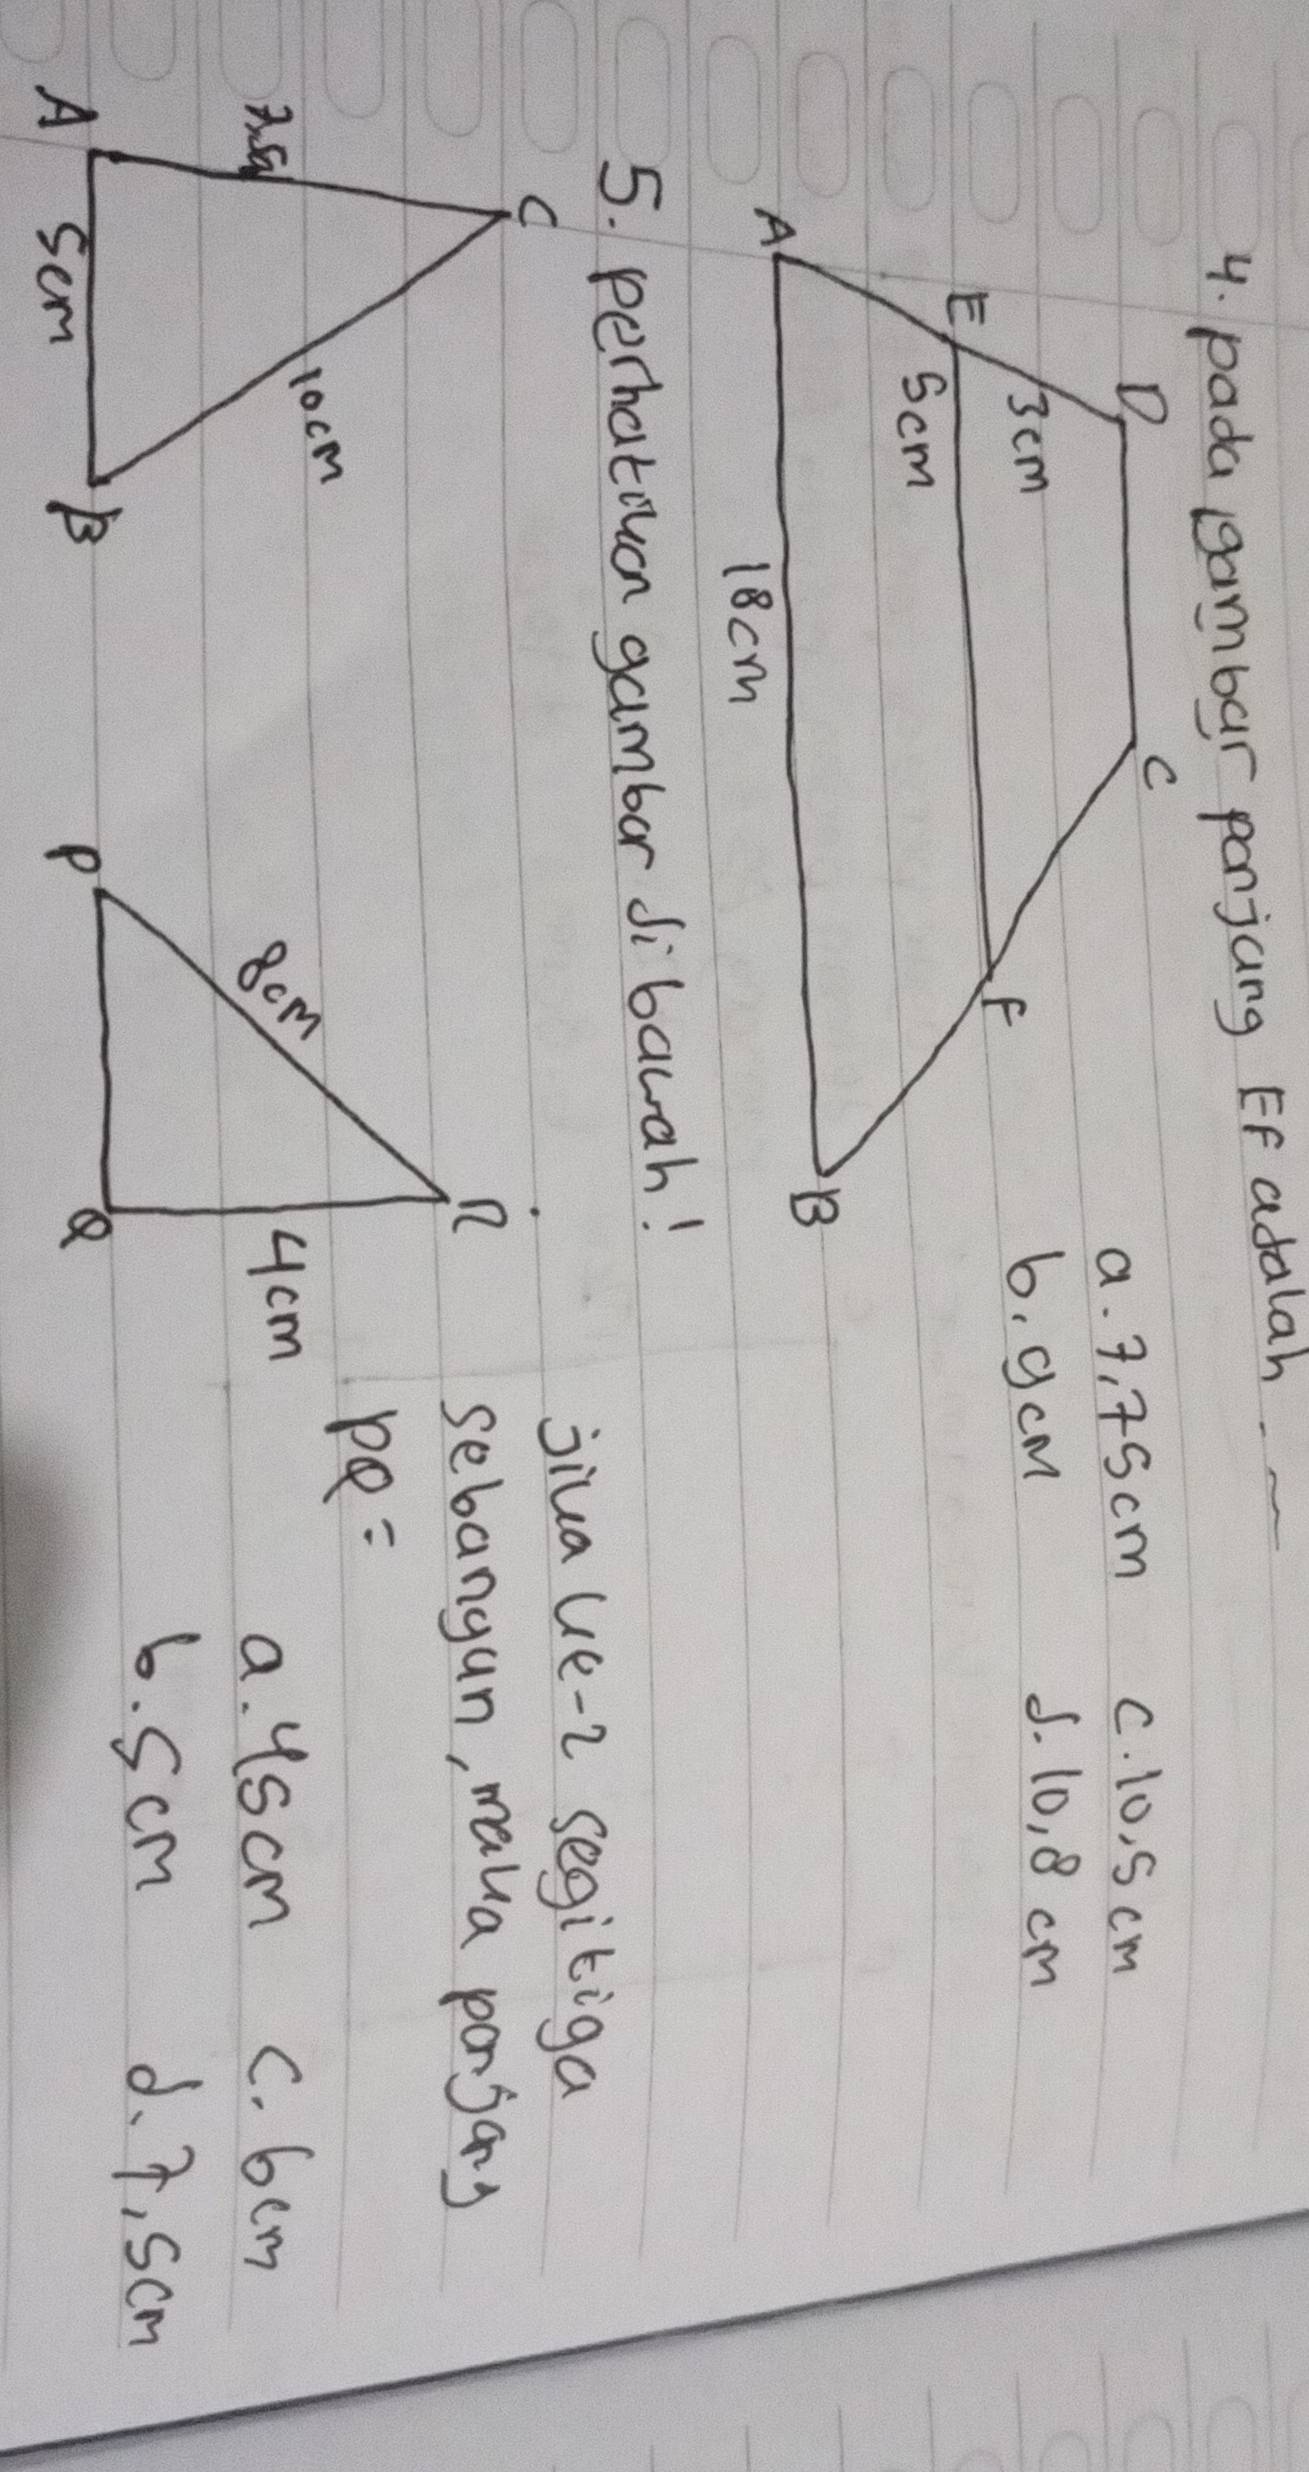 4. pada gambar panjang EF adalah ...
D
C
a. 7,75cm
c. 10,5 cm
3cm
b. 9cm
d. 10,8 cm
E
F
5cm
A
B
18cm
5. perhatikan gambar di bawah!
C
R
jika ke-2 segitiga
sebangun, maka panjang
PQ =
10cm
8cm
4cm
a. 45cm
c. 6cm
b. 5cm
d. 7,5cm
A
B
P
Q
5cm